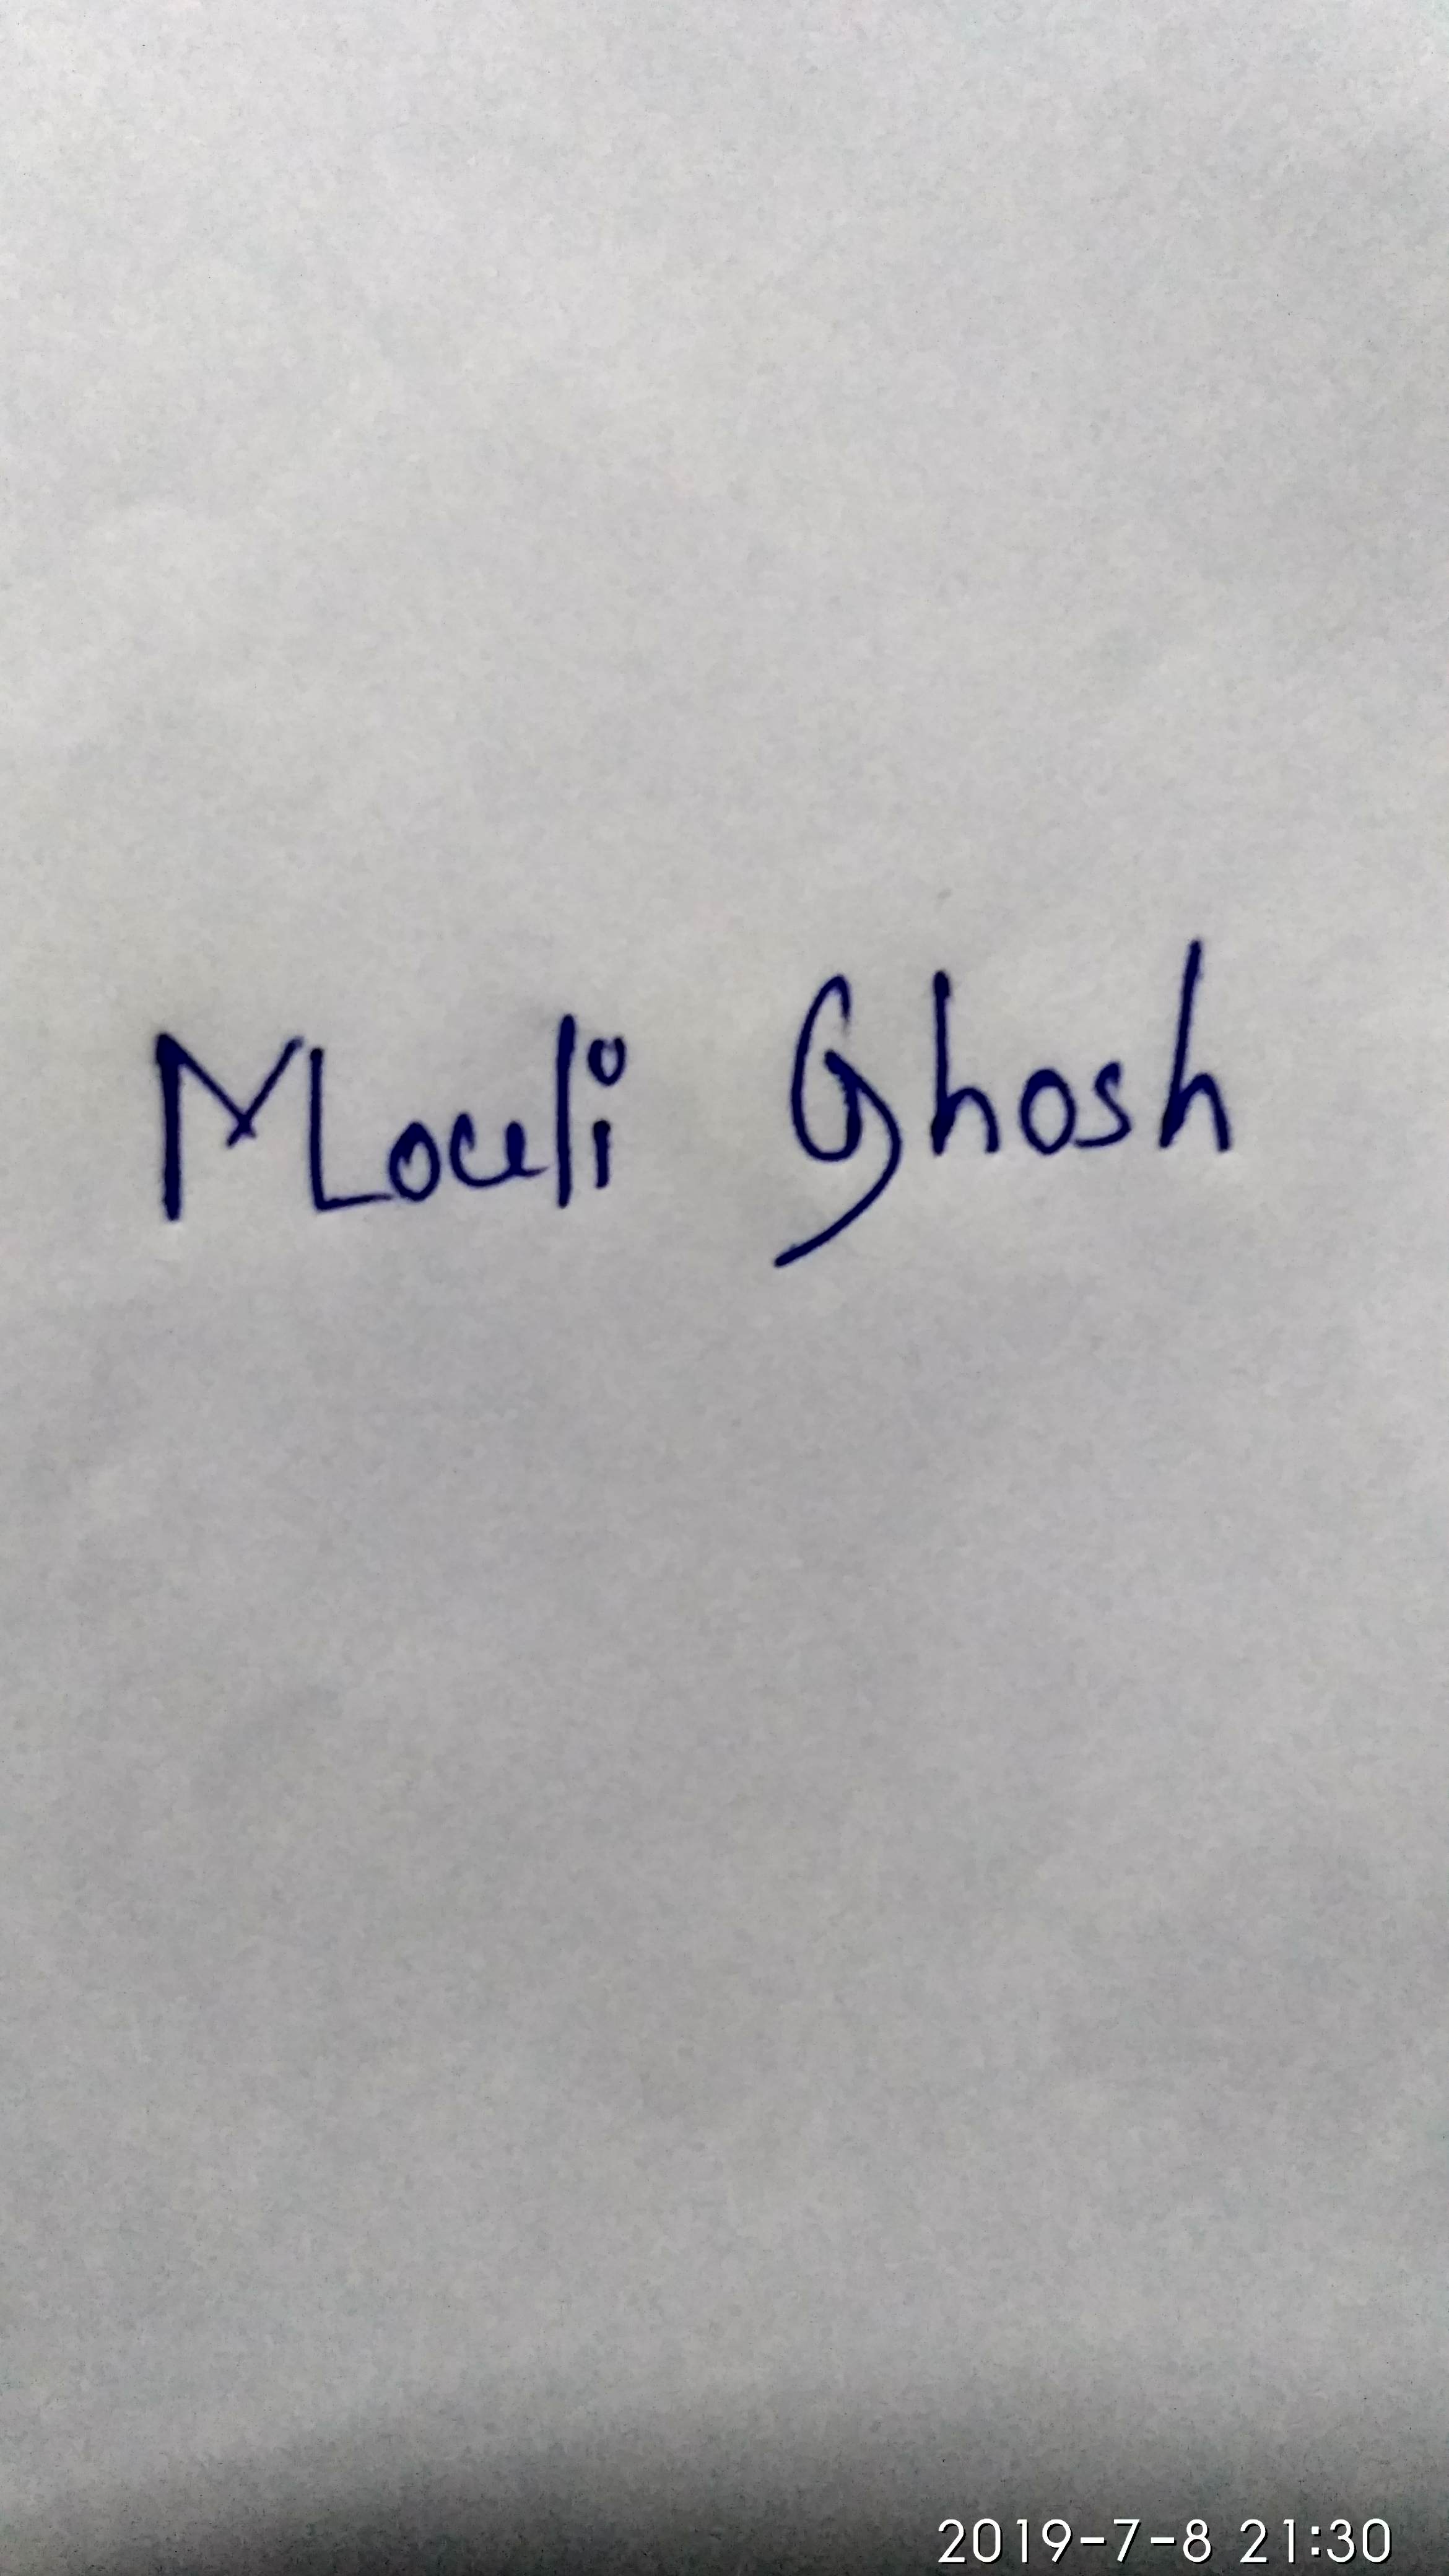 Mouli Ghosh
2019-7-8 21:30